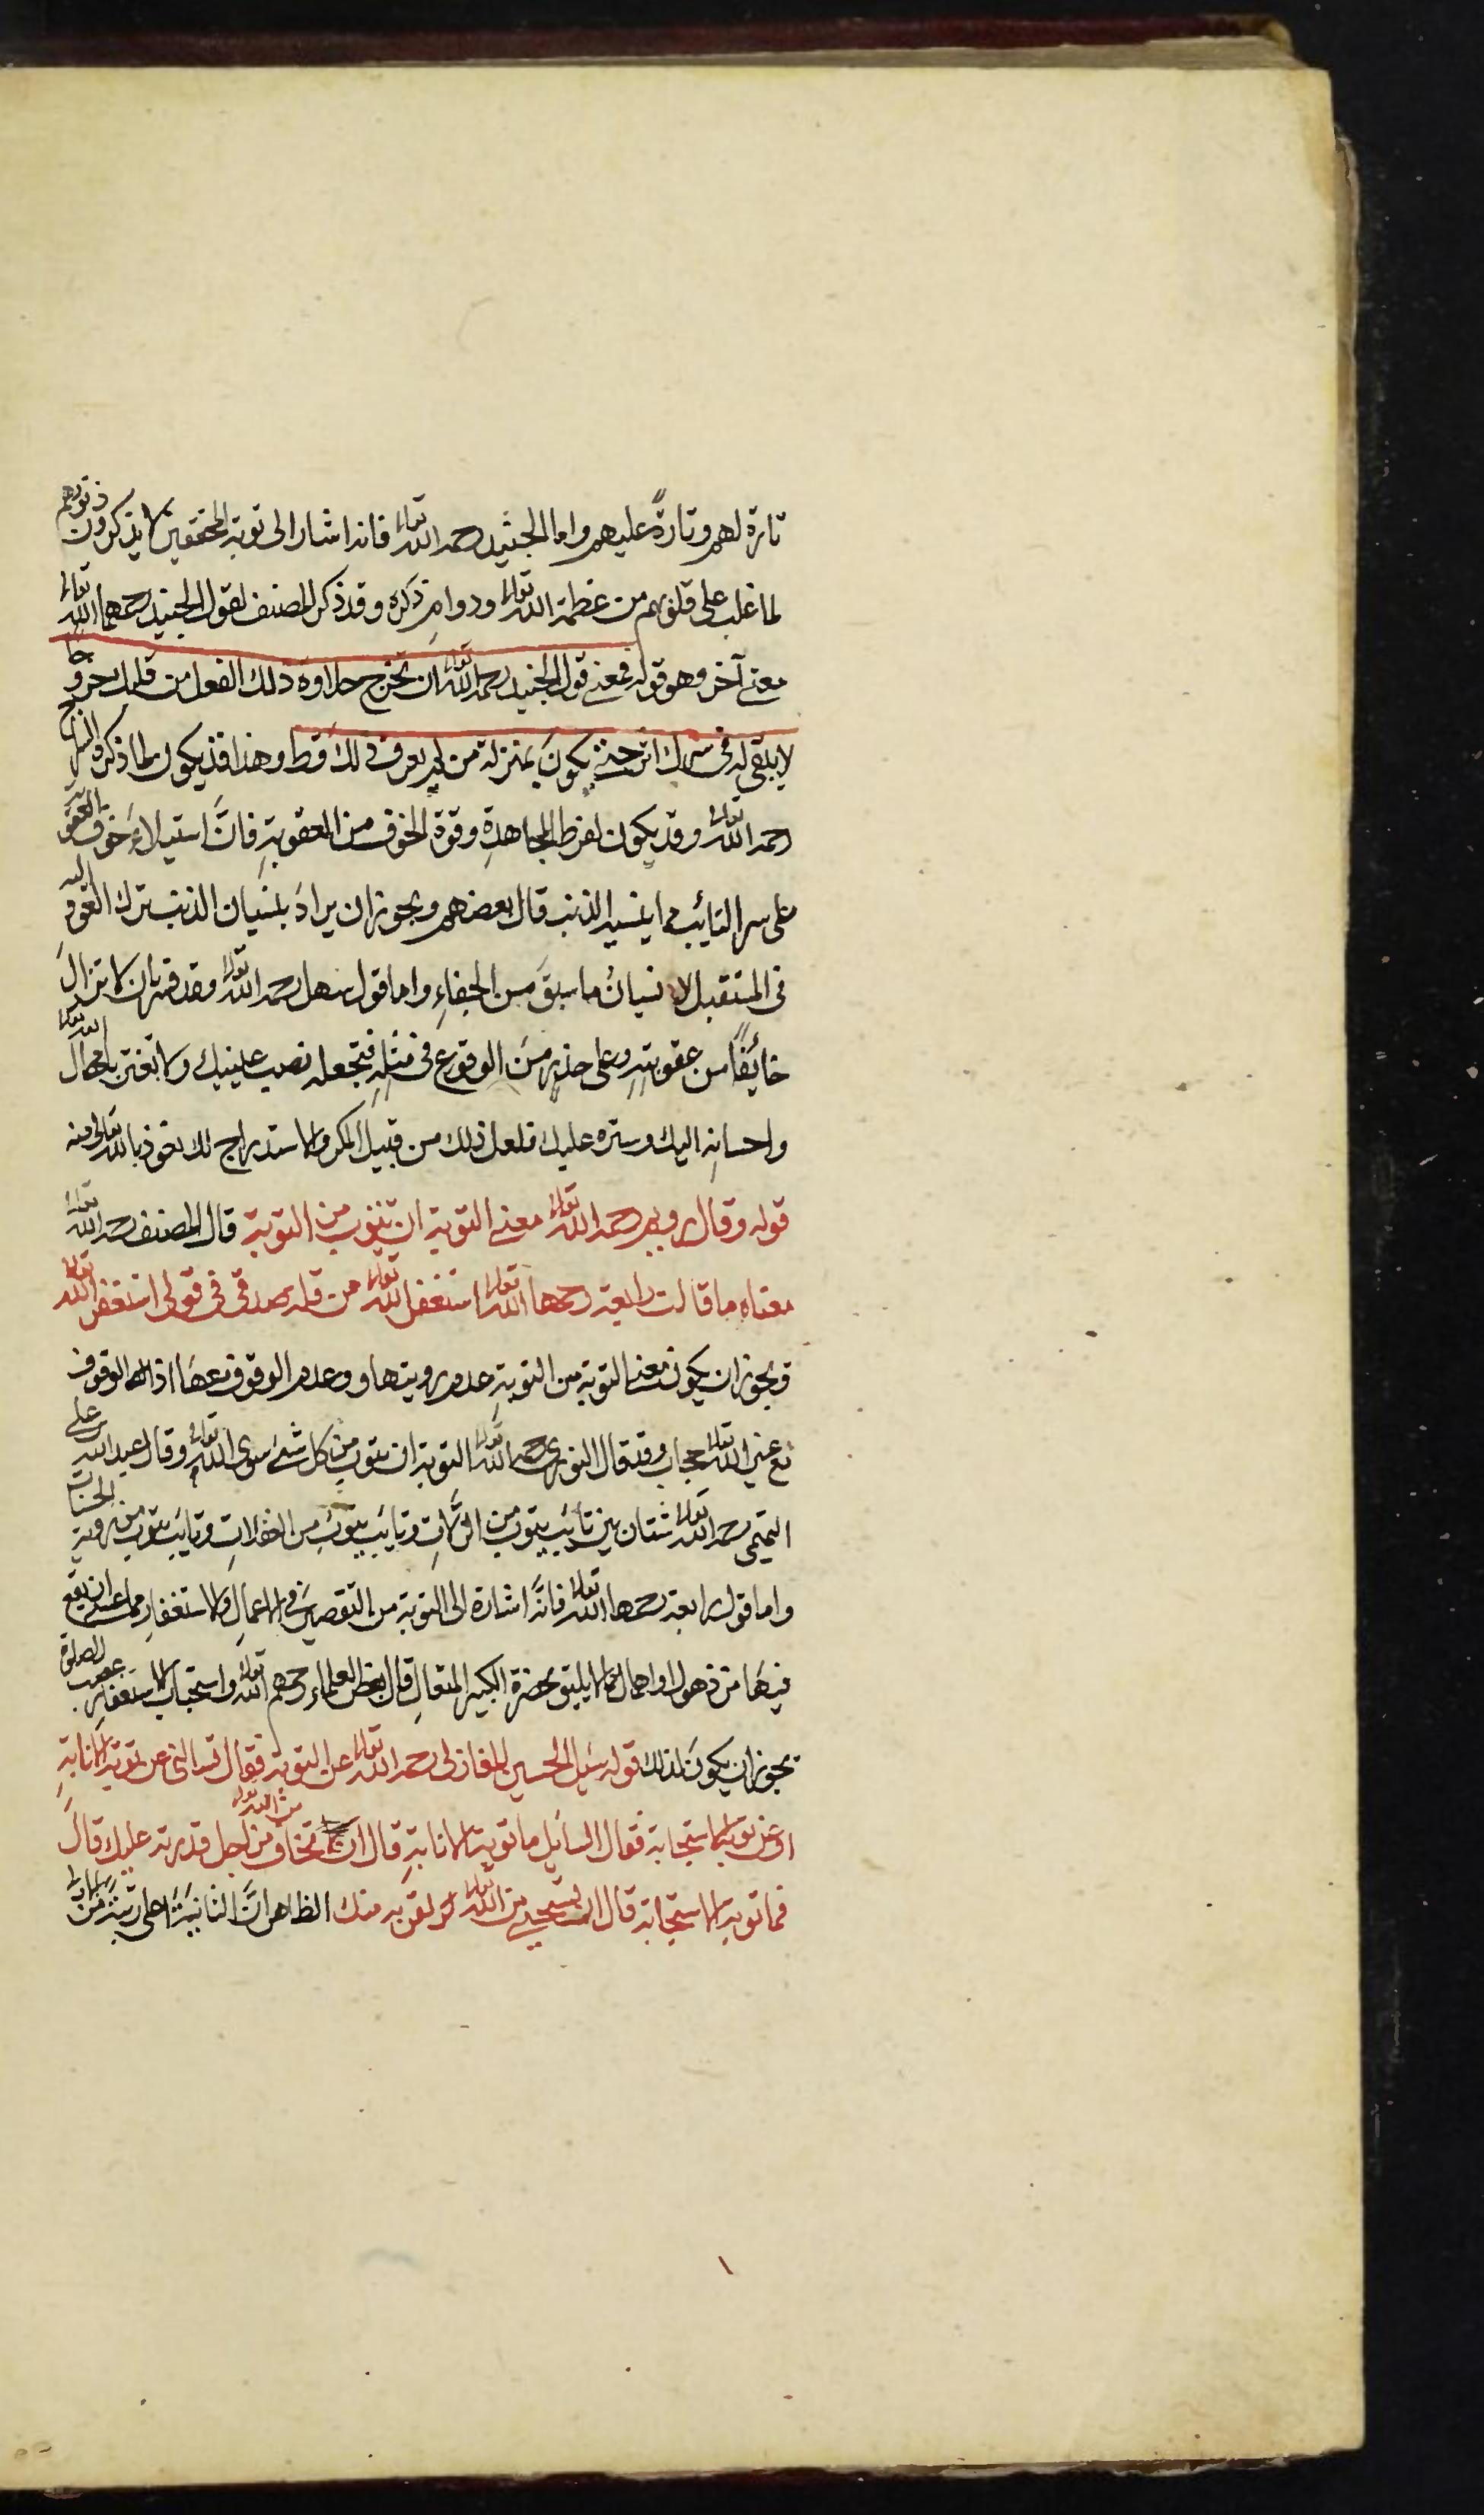 تارة لهم وتارةً عليهم واما الجنيد رحمه الله تعالى فانه اشار الى توبة المحققين لا يذكرون ذنوبهم
لما غلب على قلوبهم من عظمة الله تعالى ودوامِ ذكره وقد ذكر المصنف لقول الجنيد رحمهما الله تعالى
معنى آخر وهو قوله فمعنى قول الجنيد رحمه الله تعالى ان تخرج حلاوة ذلك الفعل من قلبك خروجا
لا يبقى له فى سرك اثر حتى يكونَ بمنزلة من لم يعرف ذلك قط وهذا قد يكون لما ذكره السراج
رحمه الله تعالى وقد يكون لفرط المجاهدةِ وقوة الخوف من العقوبةِ فانَّ استيلاءَ خوف العقوبة
على سر التائب مما ينسيه الذنب قال بعضهم ويجوز ان يرادَ بنسيان الذنب ترك العود اليه
فى المستقبل لا نسيانُ ما سبقَ من الجفاءِ واما قول سهل رحمه الله تعالى وقد فسر بان لا تزالَ
خائفًا من عقوبتهِ وعلى حذرٍ من الوقوع فى مثلهِ فتجعله نصب عينيك ولا تغتر بامهال الله تعالى
واحسانهِ اليك وستره عليك فلعل ذلك من قبيل المكر والاستدراج لك نعوذ بالله تعالى منه
قوله وقال رويم رحمه الله تعالى معنى التوبة ان تتوب من التوبة قال المصنف رحمه الله تعالى
معناه ما قالت رابعة رحمها الله تعالى استغفر الله تعالى من قلة صدقى فى قولى استغفر الله تعالى
ويجوز ان يكون معنى التوبة من التوبةِ عدم رويتها وعدم الوقوف معها اذ الوقوف
مع غير الله تعالى حجاب وقد قال النورى رحمه الله تعالى التوبة ان تتوب من كل شئ سوى الله تعالى وقال عبد الله بن على
التميمى رحمه الله تعالى شتان بين تائب يتوب من الزلات وتائب يتوب من الغفلاتِ وتائب يتوب من روية الحسنات
واما قول رابعة رحمها الله تعالى فانَّه اشارة الى التوبة من التقصير فى الاعمالِ والاستغفارِ مما عسى ان يقع
فيها من ذهول او اهمال مما لا يليق بحضرة الكبير المتعالِ قال بعض العلماء رحمهم الله تعالى واستحباب الاستغفار عقيب الصلوة
يجوز ان يكونَ لذلك قوله سئل الحسين المغازلى رحمه الله تعالى عن التوبة فقال تسالنى عن توبة الانابةِ
او عن توبة الاستجابة فقال السائل ما توبة الانابةِ قال ان تخاف من الله تعالى من اجل قدرته عليك قالَ
فما توبة الاستجابة قال ان تستحيى من الله تعالى لقربه منك الظاهر انَّ الثانيةَ اعلى رتبةً من